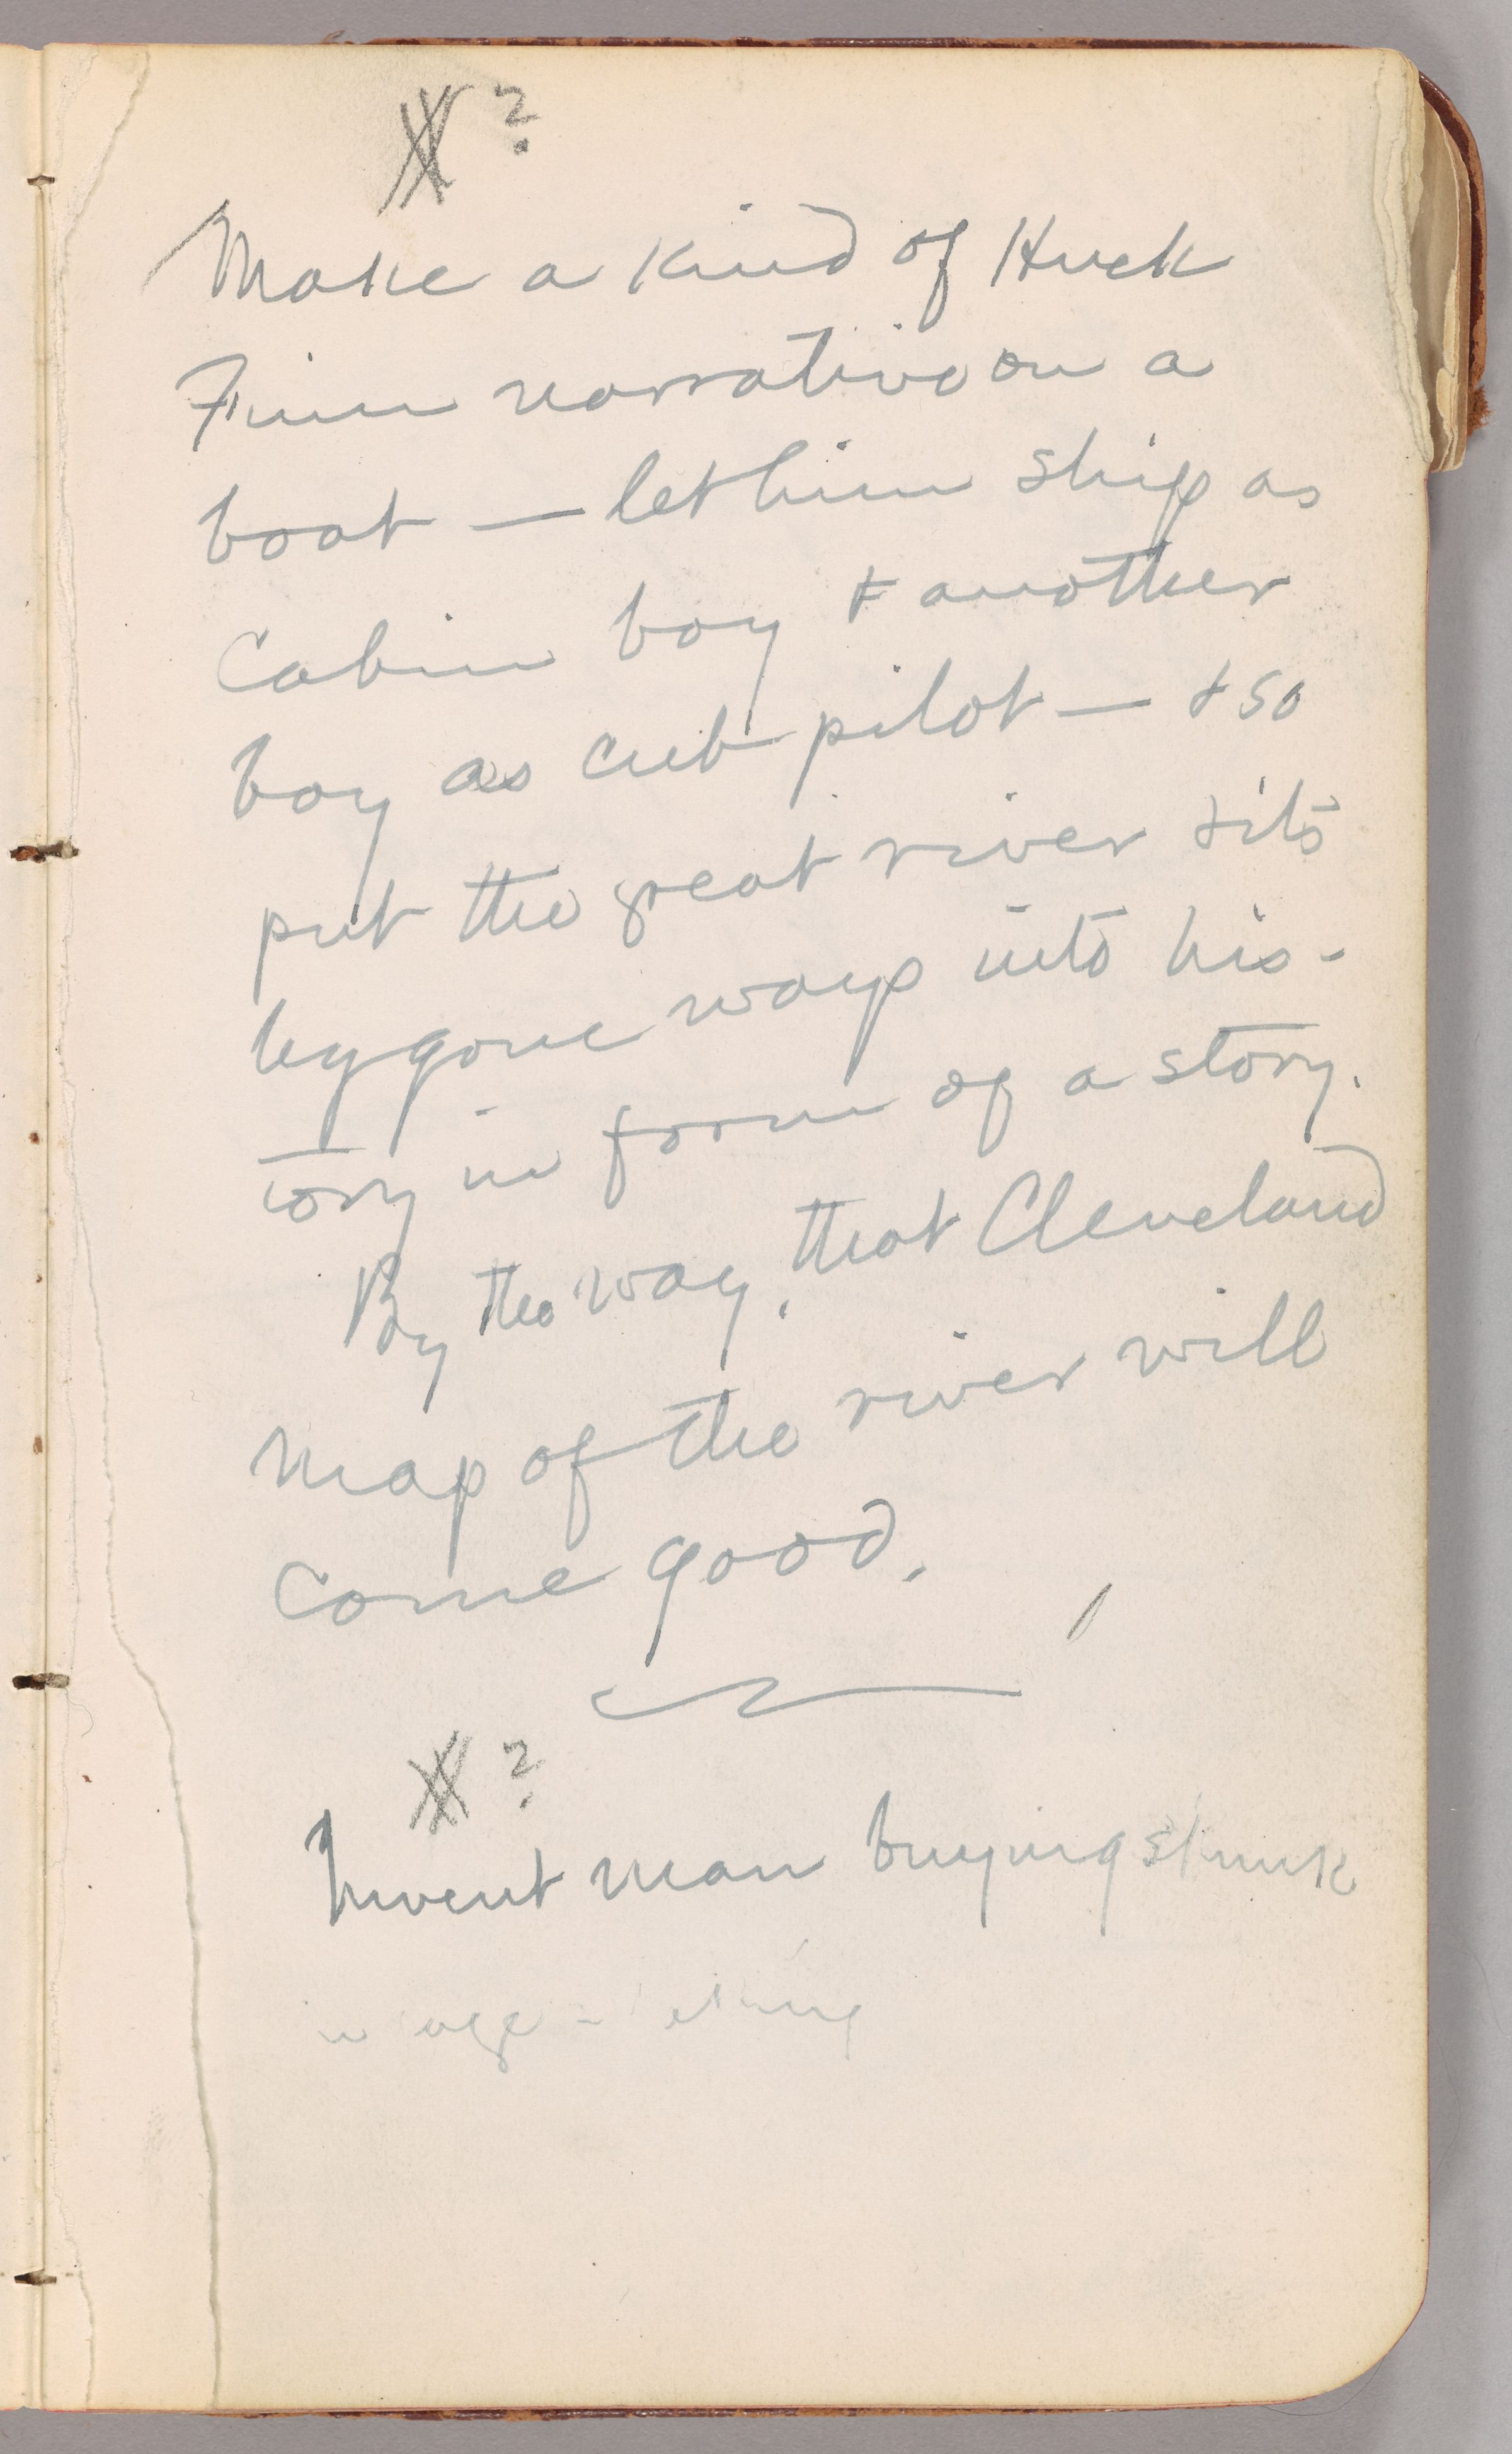 XX ?
Make a kind of Huck
Finn narrative on a
boat — let him ship as
Cabin boy & another
boy as cub pilot — & so
put the great river & its
bygone ways into his-
tory in form of a story.
By the way, that Cleveland
map of the river will
come good.
XX ?
Invent man buying skunk